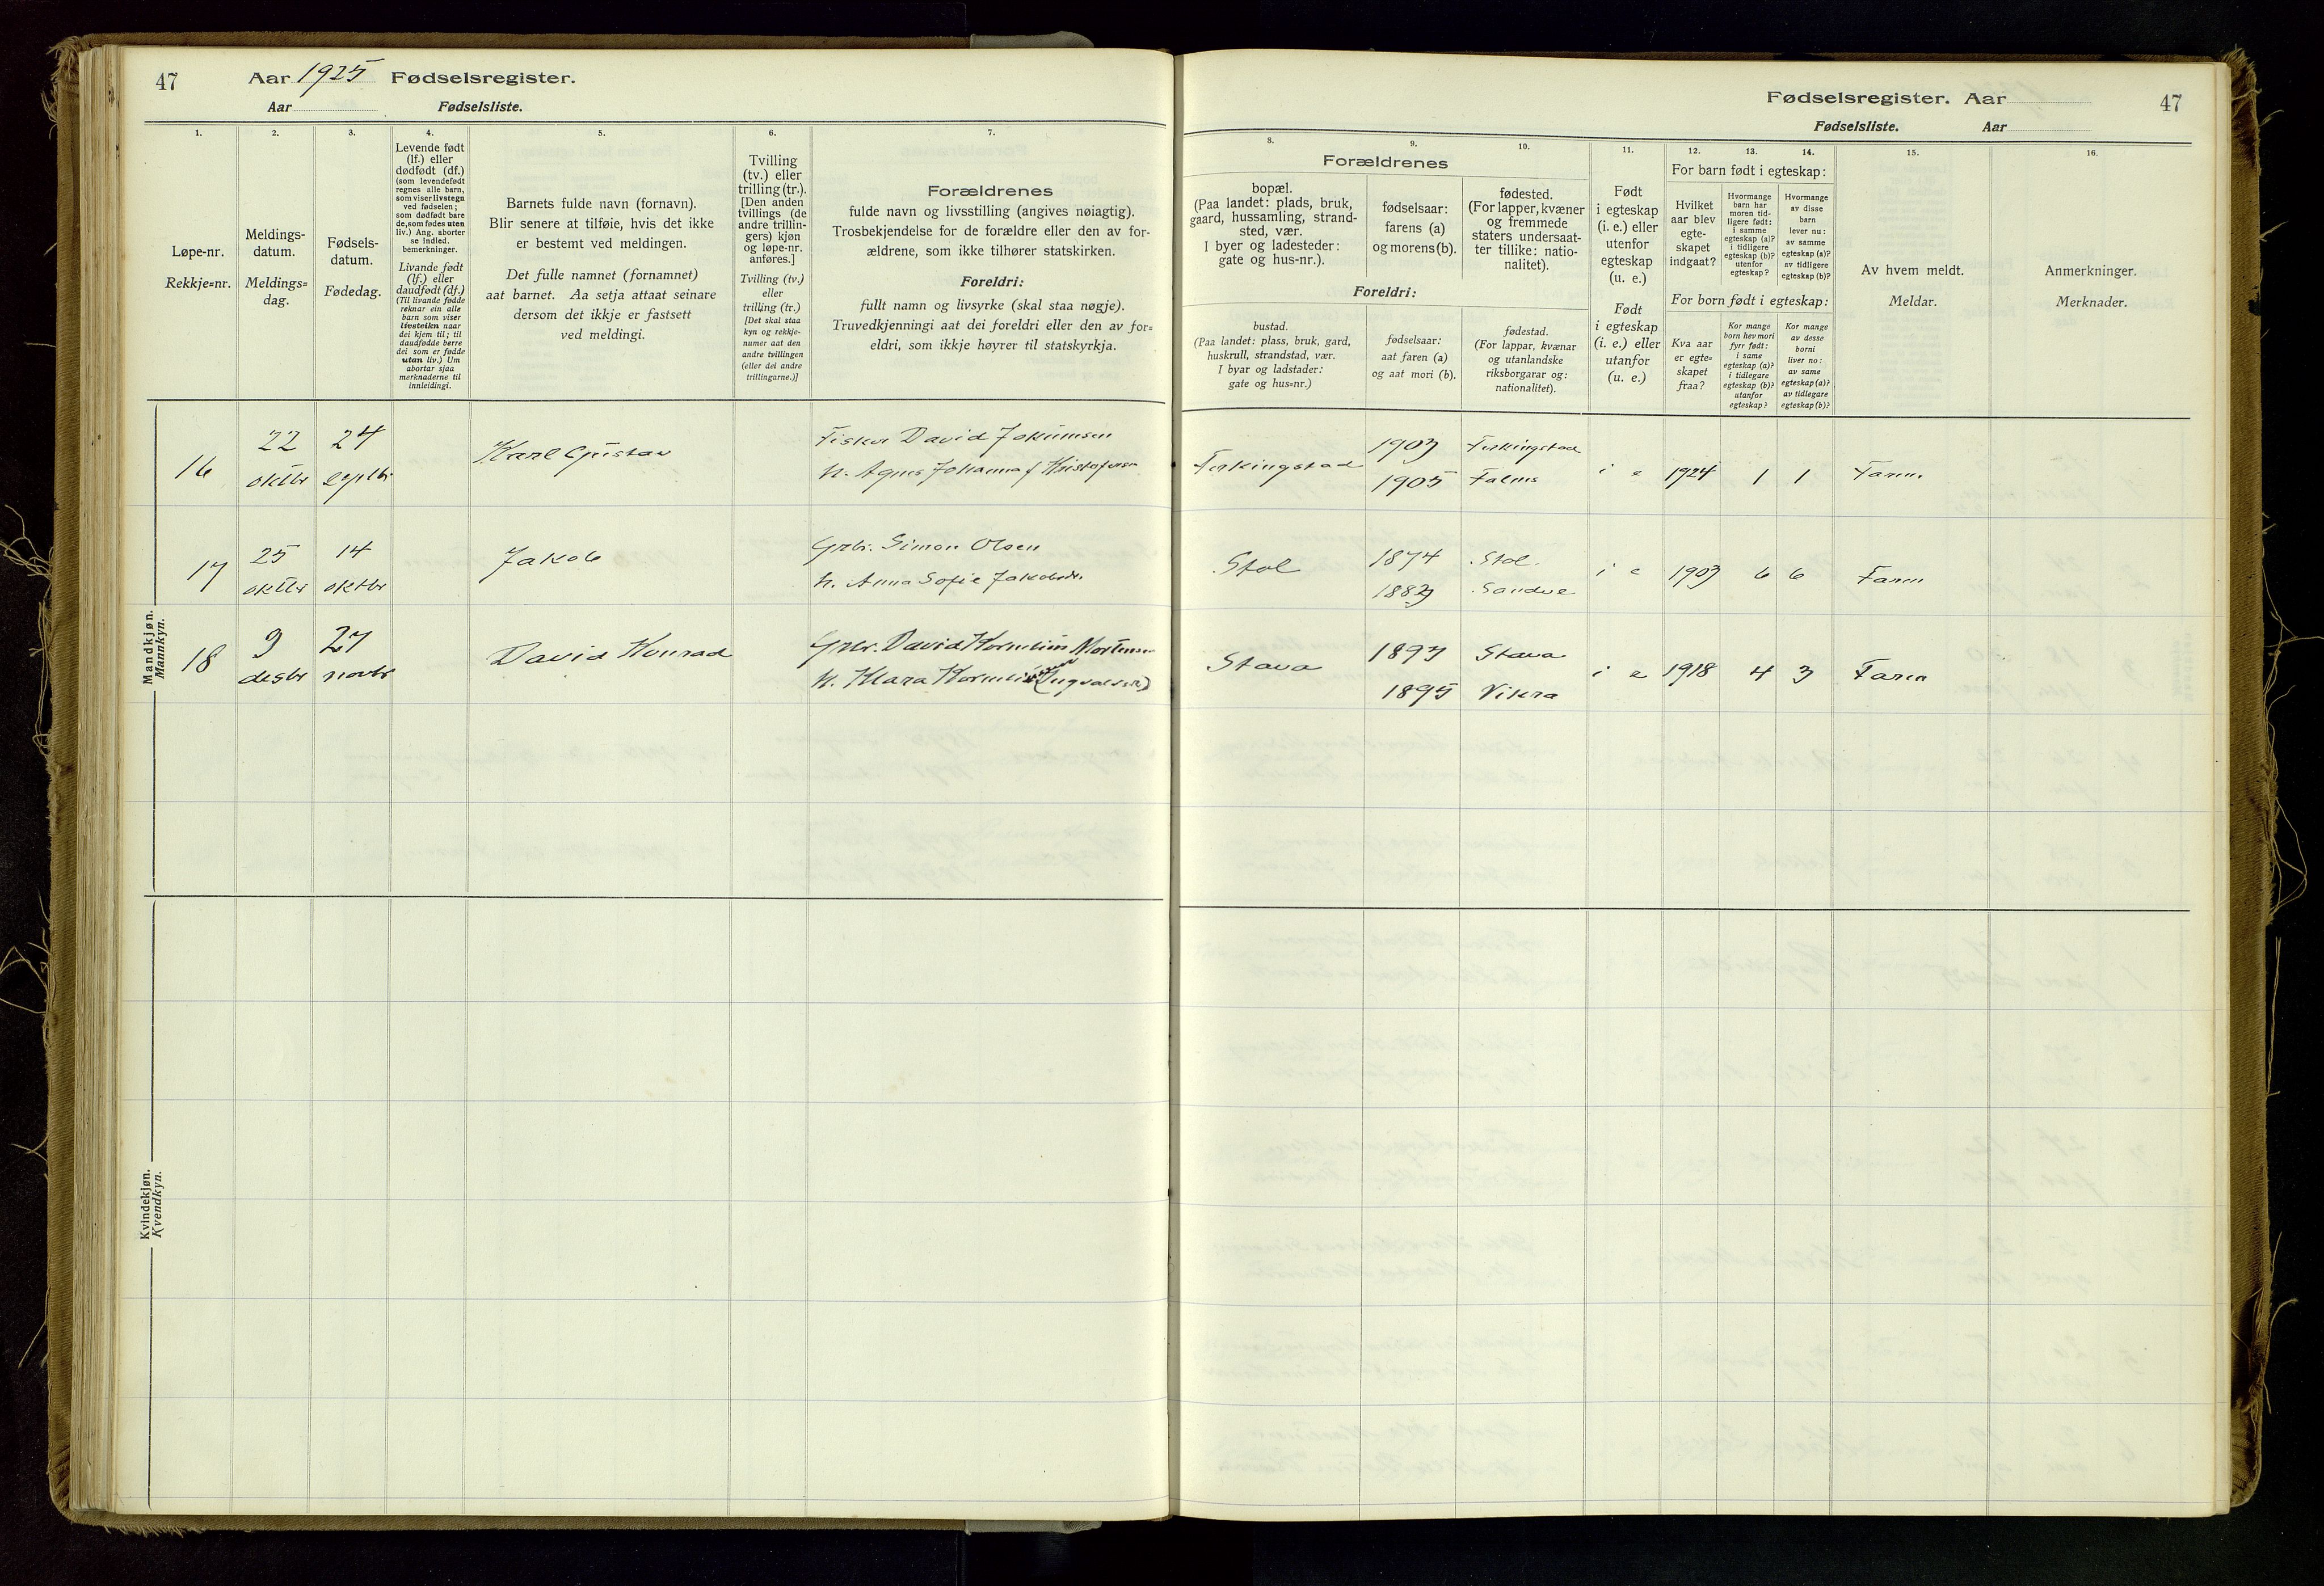 47
Aar 1925 Fødselsregister.
Aar Fødselsliste.
1.
2.
3.
4.
5.
6.
7.
Løpe-nr.
Rekkje=nr.
Meldings-
datum.
Meldings=
dag.
Fødsels-
datum.
Fødedag.
Levende født
(lf.) eller
dødfødt (df.)
(som levendefødt
regnes alle barn,
som viser livstegn
ved fødselen;
som dødfødt bare
de, som fødes uten
liv.) Ang. aborter
se indled.
bemerkninger.
Livande født
(lf.) eller
daudfødt (df.)
(Til livande fødde
reknar ein alle
barn som viser
livsteikn naar
dei kjem til; til
daudfødde berre
dei som er fødde
utan liv.) Um
abortar sjaa
merknaderne til
innleidingi.
Barnets fulde navn (fornavn).
Blir senere at tilføie, hvis det ikke
er bestemt ved meldingen.
Det fulle namnet (fornamnet)
aat barnet. Aa setja attaat seinare
dersom det ikkje er fastsett
ved meldingi.
Tvilling
(tv.) eller
trilling (tr.).
[Den anden
tvillings (de
andre trillin-
gers) kjøn
og løpe-nr.
anføres.]
Tvilling (tv.)
eller
trilling (tr.)
[Det skal staa
kyn og rekkje-
numer aat den
andre tvillingen
(eller dei andre
trillingarne.)]
Forældrenes
fulde navn og livsstilling (angives nøiagtig).
Trosbekjendelse for de forældre eller den av for-
ældrene, som ikke tilhører statskirken.
Foreldri:
fullt namn og livsyrke (skal staa nøgje).
Truvedkjenningi aat dei foreldri eller den av for=
eldri, som ikkje høyrer til statskyrkja.
Mandkjøn.
Mannkyn.
16
22
oktbr
24
septbr
Karl Gustav
Fisker David Jokumsen
h. Agnes Johanna f Kristofersen
17
25
oktbr
14
oktbr
Jakob
Grbr. Simon Olsen
h. Anna Sofie Jakobsdr.
18
9
desbr
27
novbr
David Konrad
Grbr. David Kornelius Mortensen
h. Klara Kornelia
Kvindekjøn.
Kvendkyn.
Fødselsregister. Aar
47
Fødselsliste. Aar
8.
9.
10.
11.
12.
13.
14.
15.
16.
Forældrenes
bopæl.
(Paa landet: plads, bruk,
gaard, hussamling, strand-
sted, vær.
I byer og ladesteder:
gate og hus-nr.).
fødselsaar:
farens (a)
og morens (b).
fødested.
(For lapper, kvæner
og fremmede
staters undersaat-
ter tillike: natio-
nalitet).
Foreldri:
bustad.
(Paa landet: plass, bruk, gard,
huskrull, strandstad, vær.
I byar og ladstader:
gate og hus=nr.)
fødselsaar:
aat faren (a)
og aat mori (b).
fødestad.
(For lappar, kvænar
og utanlandske
riksborgarar og:
nationalitet).
Født
i egteskap
(i. e.) eller
utenfor
egteskap
(u. e.)
Født
i egteskap
(i. e.) eller
utanfor
(u. e.)
For barn født i egteskap:
Hvilket
aar blev
egte-
skapet
indgaat?
Hvormange
barn har
moren tid-
ligere født:
i samme
egteskap (a)?
i tidligere
egteskap (b)?
utenfor
egteskap?
Hvormange
av disse
barn
lever nu:
av samme
egteskap (a)?
av tidligere
egteskap (b)?
For born født i egteskap:
Kva aar
er egte=
skapet
fraa?
Kor mange
born hev mori
fyrr født:
i same
egteskap (a)?
i tidlegare
egteskap (b)?
utanfor
egteskap?
Kor mange
av desse
borni
liver no:
av same
egteskap (a)?
av tidlegare
egteskap (b)?
Av hvem meldt.
Meldar.
Anmerkninger.
Merknader.
Ferkingstad
1903
1905
Ferkingstad
Falnes
i e
1924
1
1
Faren
Stol
1874
1883
Stol
Sandve
i e
1903
6
6
Faren
Stava
1893
1895
Stava
Vikra
i e
1918
4
3
Faren